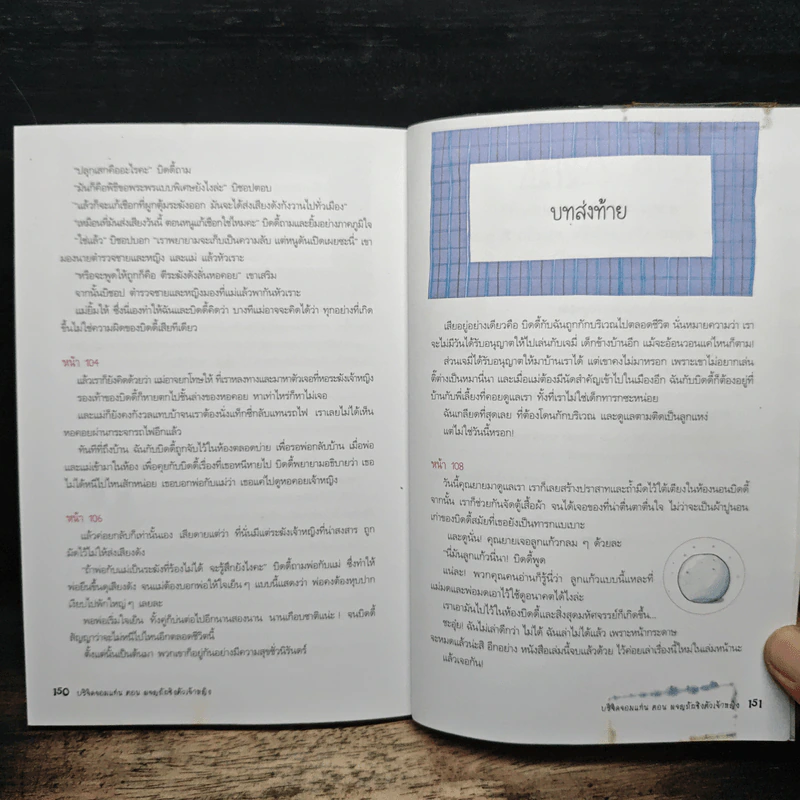 "ปลุกเสกคืออะไรคะ" บิตตี้ถาม
"มันก็คือพิธีขอพระพรแบบพิเศษยังไงล่ะ" บิชอปตอบ
"แล้วก็จะแก้เชือกที่ผูกตุ้มระฆังออก มันจะได้ส่งเสียงดังกังวานไปทั่วเมือง"
"เหมือนที่มันส่งเสียงวันนี้ ตอนหนูแก้เชือกใช่ไหมคะ" บิตตี้ถามและยิ้มอย่างภาคภูมิใจ
"ใช่แล้ว" บิชอปบอก "เราพยายามจะเก็บเป็นความลับ แต่หนูดันเปิดเผยซะนี่" เขา
มองนายตำรวจชายและหญิง และแม่ แล้วหัวเราะ
"หรือจะพูดให้ถูกก็คือ ตีระฆังดังลั่นหอคอย" เขาเสริม
จากนั้นบิชอป ตำรวจชายและหญิงมองที่แม่แล้วพากันหัวเราะ
แม่ยิ้มให้ ซึ่งนี่เองทำให้ฉันและบิตตี้คิดว่า บางทีแม่อาจจะคิดได้ว่า ทุกอย่างที่เกิด
ขึ้นไม่ใช่ความผิดของบิตตี้เสียทีเดียว
หน้า 104
แล้วเราก็ยังคิดด้วยว่า แม่อาจยกโทษให้ ที่เราหลงทางและมาหาตัวเจอที่หอระฆังเจ้าหญิง
รองเท้าของบิตตี้ก็หายตกไปชั้นล่างของหอคอย หาเท่าไหร่ก็หาไม่เจอ
และแม่ก็ยังคงกังวลแทบบ้าจนเราต้องนั่งแท็กซี่กลับแทนรถไฟ เราเลยไม่ได้เห็น
หอคอยผ่านกระจกรถไฟอีกแล้ว
ทันทีที่ถึงบ้าน ฉันกับบิตตี้ถูกจับไว้ในห้องตลอดบ่าย เพื่อรอพ่อกลับบ้าน เมื่อพ่อ
และแม่เข้ามาในห้อง เพื่อคุยกับบิตตี้เรื่องที่เธอหนีหายไป บิตตี้พยายามอธิบายว่า เธอ
ไม่ได้หนีไปไหนสักหน่อย เธอบอกพ่อกับแม่ว่า เธอแค่ไปดูหอคอยเจ้าหญิง
หน้า 106
แล้วค่อยกลับก็เท่านั้นเอง เสียดายแต่ว่า ที่นั่นมีแต่ระฆังเจ้าหญิงที่น่าสงสาร ถูก
มัดไว้ไม่ให้ส่งเสียงดัง
"ถ้าพ่อกับแม่เป็นระฆังที่ร้องไม่ได้ จะรู้สึกยังไงคะ" บิตตี้ถามพ่อกับแม่ ซึ่งทำให้
พ่อยืนขึ้นดุเสียงดัง จนแม่ต้องบอกพ่อให้ใจเย็นๆ แบบนี้แสดงว่า พ่อคงต้องหุบปาก
เงียบไปพักใหญ่ๆ เลยละ
พอพ่อเริ่มใจเย็น ทั้งคู่ก็บ่นต่อไปอีกนานสองนาน นานเกือบชาติแน่ะ ! จนบิตตี้
สัญญาว่าจะไม่หนีไปไหนอีกตลอดชีวิตนี้
ตั้งแต่นั้นเป็นต้นมา พวกเขาก็อยู่กันอย่างมีความสุขชั่วนิรันดร์
150 บริจิดจอมแก่น ตอน ผจญภัยชิงตัวเจ้าหญิง
บทส่งท้าย
เสียอยู่อย่างเดียวคือ บิตตี้กับฉันถูกกักบริเวณไปตลอดชีวิต นั่นหมายความว่า เรา
จะไม่มีวันได้รับอนุญาตให้ไปเล่นกับเจมี่ เด็กข้างบ้านอีก แม้จะอ้อนวอนแค่ไหนก็ตาม!
ส่วนเจมี่ได้รับอนุญาตให้มาบ้านเราได้ แต่เขาคงไม่มาหรอก เพราะเขาไม่อยากเล่น
ตี้ต่างเป็นหมานี่นา และเมื่อแม่ต้องมีนัดสำคัญเข้าไปในเมืองอีก ฉันกับบิตตี้ก็ต้องอยู่ที่
บ้านกับพี่เลี้ยงที่คอยดูแลเรา ทั้งที่เราไม่ใช่เด็กทารกซะหน่อย
ฉันเกลียดที่สุดเลย ที่ต้องโดนกักบริเวณ และดูแลตามติดเป็นลูกแหง่
แต่ไม่ใช่วันนี้หรอก!
หน้า 108
วันนี้คุณยายมาดูแลเรา เราก็เลยสร้างปราสาทและถ้ำมืดไว้ใต้เตียงในห้องนอนบิตตี้
จากนั้น เราก็ช่วยกันจัดตู้เสื้อผ้า จนได้เจอของที่น่าตื่นตาตื่นใจ ไม่ว่าจะเป็นผ้าปูนอน
เก่าของบิตตี้สมัยที่เธอยังเป็นทารกแบเบาะ
และดูนั่น! คุณยายเจอลูกแก้วกลม ๆ ด้วยละ
"นี่มันลูกแก้วนี่นา! บิตตี้พูด
แน่ละ! พวกคุณคนอ่านก็รู้นี่ว่า ลูกแก้วแบบนี้แหละที่
แม่มดและพ่อมดเอาไว้ใช้ดูอนาคตได้ไงล่ะ
เราเอามันไปไว้ในห้องบิตตี้และสิ่งสุดมหัศจรรย์ก็เกิดขึ้น...
ชะอุ้ย! ฉันไม่เล่าดีกว่า ไม่ได้ ฉันเล่าไม่ได้แล้ว เพราะหน้ากระดาษ
จะหมดแล้วน่ะสิ อีกอย่าง หนังสือเล่มนี้จบแล้วด้วย ไว้ค่อยเล่าเรื่องนี้ใหม่ในเล่มหน้านะ
แล้วเจอกัน!
บริจิดจอมแก่น ตอน ผจญภัยชิงตัวเจ้าหญิง 151